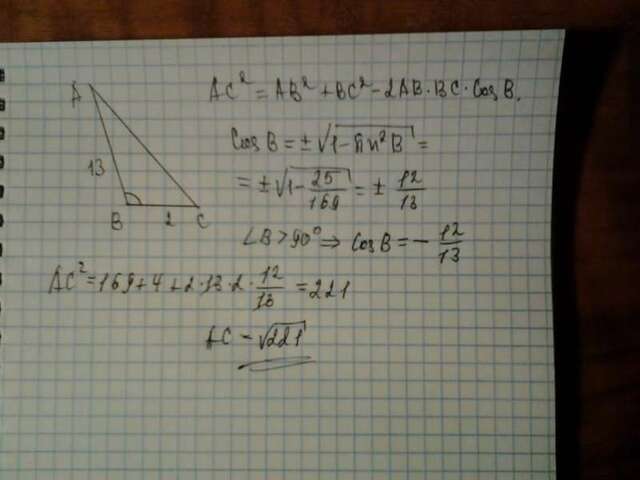 A
13
B 2 C
AC² = AB² + BC² - 2AB·BC·cos B.
cos B = ±√(1 - sin² B) =
= ±√(1 - 25/169) = ± 12/13
∠B > 90° ⇒ cos B = - 12/13
AC² = 169 + 4 + 2·13·2·12/13 = 221
AC = √221